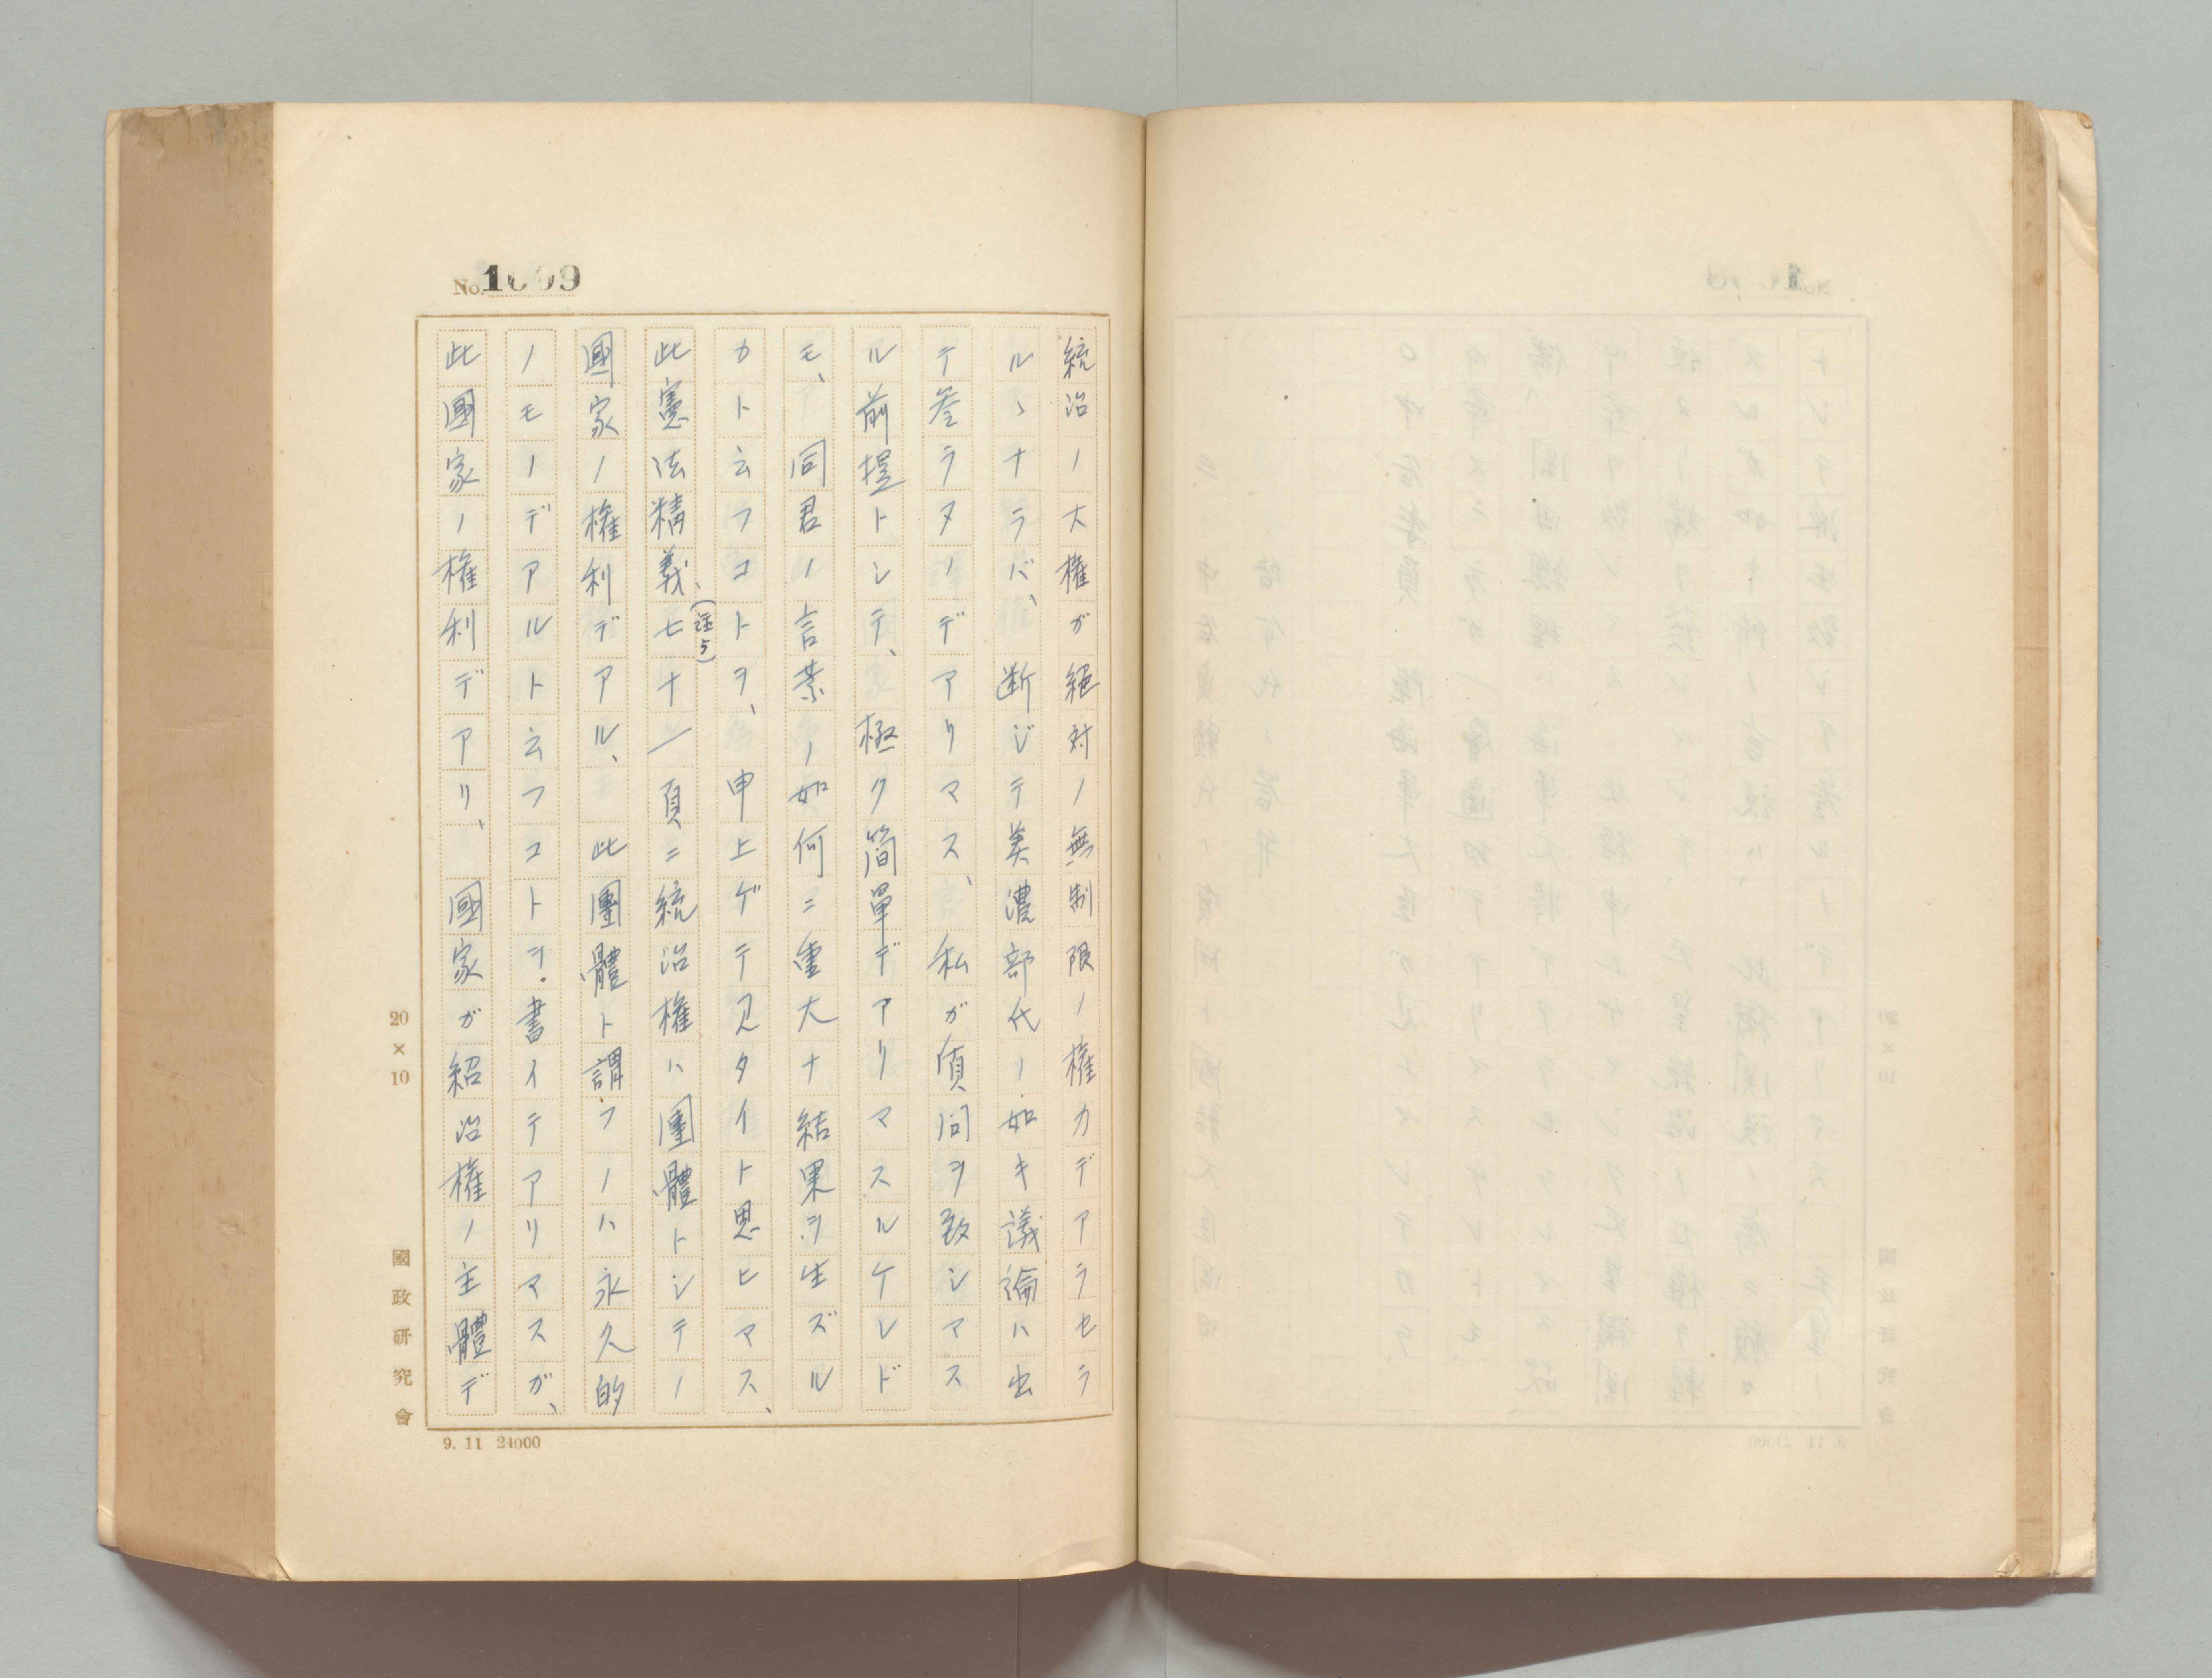 No. 1009
統治ノ大権ガ絕対ノ無制限ノ権力デアラセラ
ルヽナラバ、断ジテ美濃部代ノ如キ議論ハ出
テ参ラヌノデアリマス、私ガ質問ヲ致シマス
ル前提トシテ、極ク簡單デアリマスルケレド
モ、同君ノ言葉ノ如何ニ重大ナ結果ヲ生ズル
カト云フコトヲ、申上ゲテ見タイト思ヒマス、
(註5)
此憲法精義、七十一頁ニ統治権ハ團體トシテノ
國家ノ権利デアル、此團體ト謂フノハ永久的
ノモノデアルト云フコトヲ書イテアリマスガ、
此國家ノ権利デアリ、國家ガ紹治権ノ主體デ
20×10
國政研究會
9. 11 24000